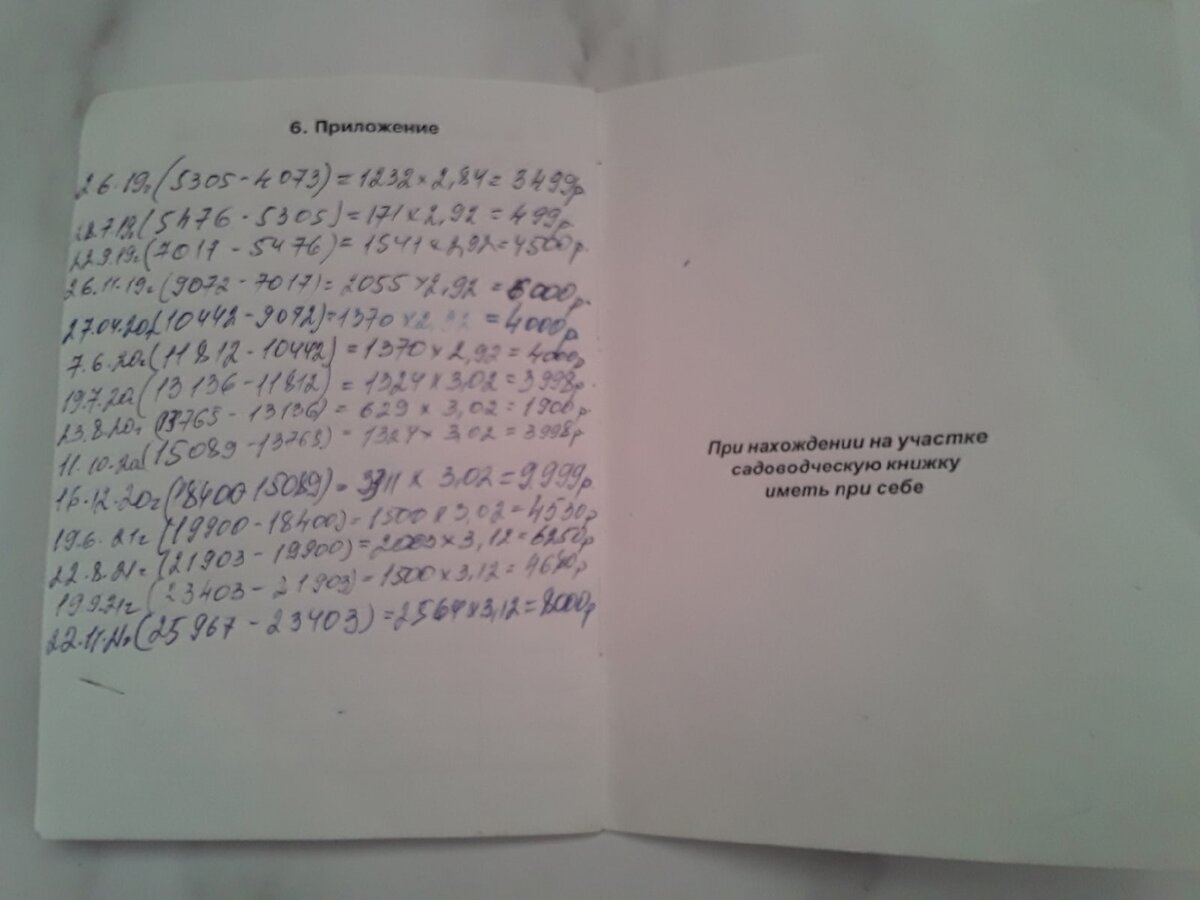 6. Приложение
2.6.19г(5305-4073)=1232×2,84=3499р
(5476-5305)=171×2,92=499р
22.9.19г(7017-5476)=1541×2,92=4500р
26.11.19г(9072-7017)=2055×2,92=6000р
27.04.20г(10442-9072)=1370×2,92=4000р
7.6.20г(11812-10442)=1370×2,92=4000р
19.7.20г(13136-11812)=1324×3,02=3998р
23.8.20г(13765-13136)=629×3,02=1900р
11.10.20г(15089-13765)=1324×3,02=3998р
16.12.20г(18400 15089)=3311×3,02=9999р
19.6.21г(19900-18400)=1500×3,02=4530р
22.8.21г(21903-19900)=2003×3,12=6250р
19.9.21г(23403-21903)=1500×3,12=4680р
22.11.21г(25967-23403)=2564×3,12=8000р
При нахождении на участке
садоводческую книжку
иметь при себе